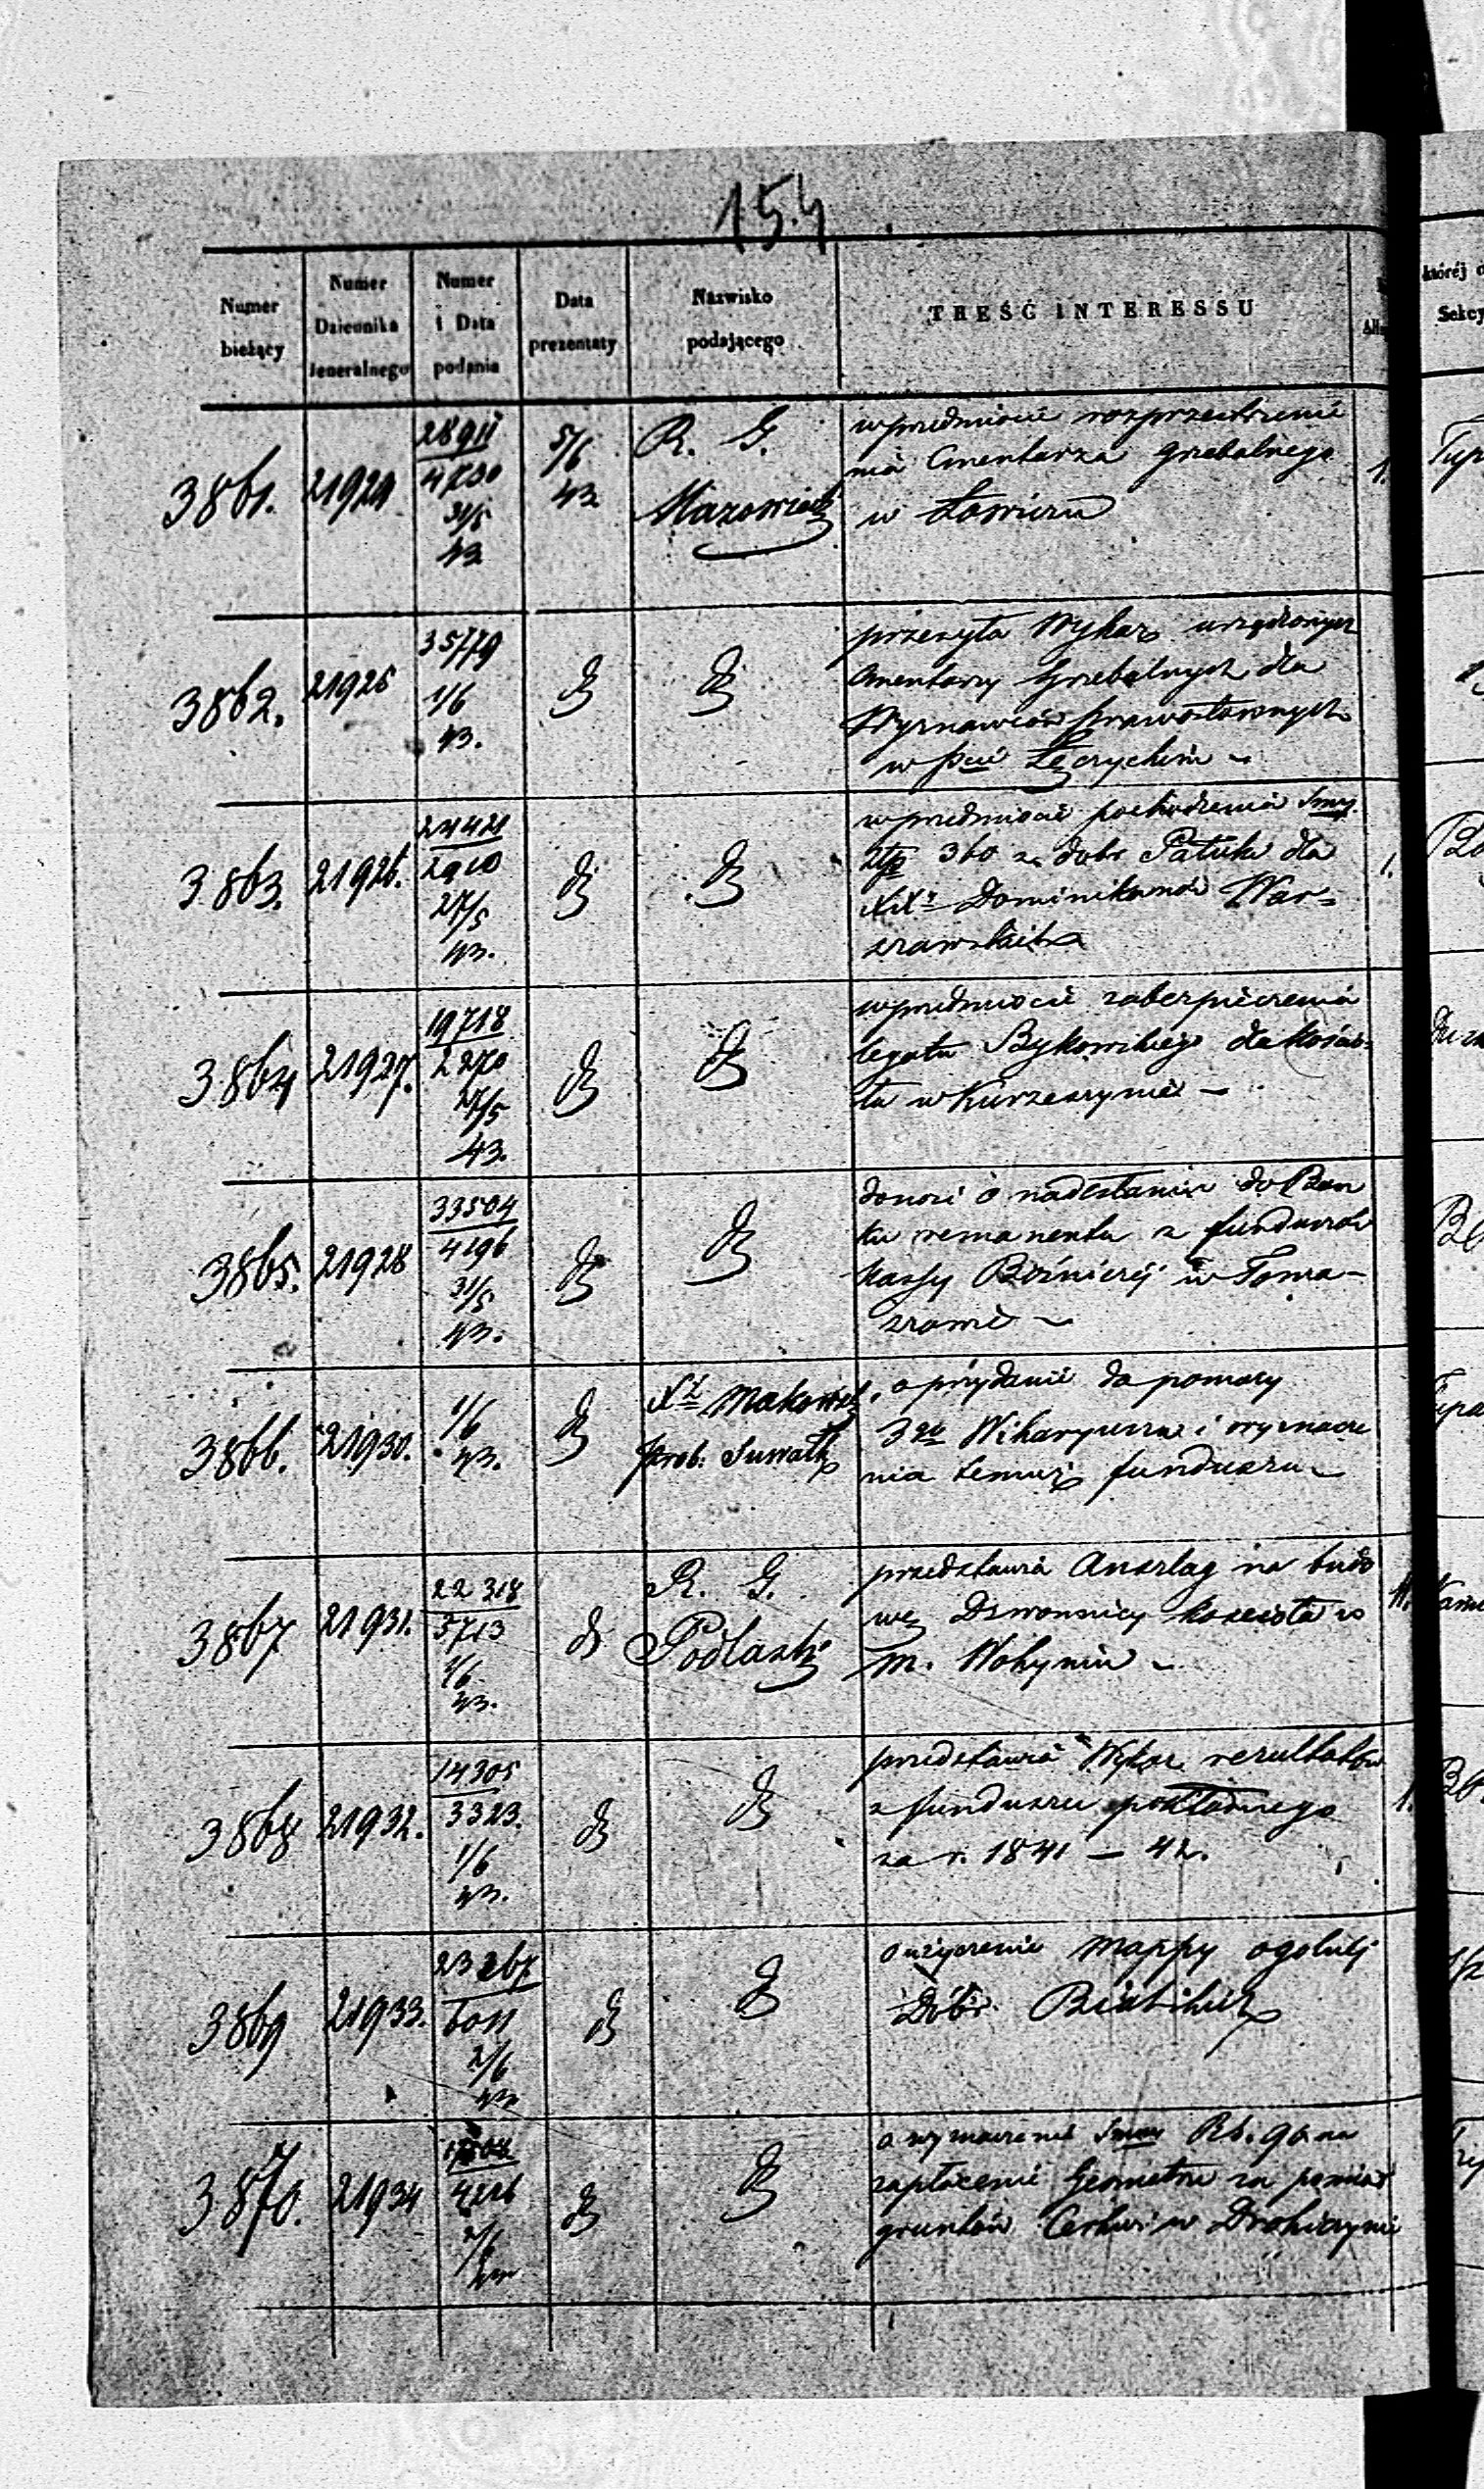 154
Numer bieżący
Numer Dziennika Jeneralnego
Numer i Data podania
Data prezentaty
Nazwisko podającego
TREŚĆ INTERESSU
któréj
Sekcy
3861. 21924
4730
31/5
43
5/6
43
R. G.
Mazowiecki
w przedmiocie rozprzestrzenie
nia Cmentarza Grzebalnego
w Łowiczu
1.
3862. 21925
35779
1/6
43.
przesyła Wykaz urządzonych
Cmentarzy Grzebalnych dla
Wyznawców prawosławnych
w pcie Łęczyckim
3863. 21926.
24421
2910
27/5
43.
w przedmiocie pochodzenia Smy
złp 360 z dobr dla
XX Dominikanów War=
szawskich
1.
3864 21927.
19718
2270
27/5
43.
w przedmiocie zabezpieczenia
legatu Bykowskiego dla Kościo=
ła w Kurzeszynie —
3865. 21928
33504
4196
31/5
43.
donosi o nadesłaniu do Ban
ku remanentu z funduszów
Kassy Bóżniczéj w Toma-
szowie
3866. 21930.
1/6
43.
Prob: Suwałk
o przydanie do pomocy
3go Wikaryusza i wyznacze
nia temuż funduszu
3867 21931.
22318
3713
1/6
43.
R. G.
Podlaski
przedstawia Anszlag na budo
wę Dzwonnicy Kościoła w
m. Wohyniu
3868 21932.
14305
3323.
1/6
43.
przedstawia Wykaz rezultatów
z funduszu pokładnego
za r. 1841 — 42.
1.
3869 21933.
23267
6011
2/6
43
o użyczenie Mappy ogólnéj
Dóbr Bialskich
3870. 21934
2/6
o wyznaczenie Smy Rs. 90 na
zapłacenie Geometrze za pomiar
gruntów Cerkwi w Drohiczynie